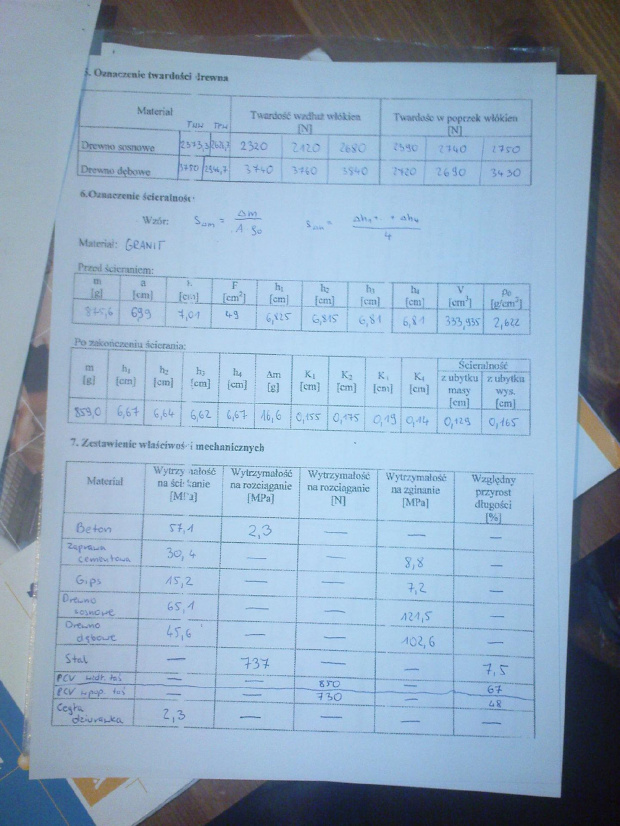 5. Oznaczenie twardości drewna
Materiał Twardość wzdłuż włókien [N] Twardość w poprzek włókien [N]
Drewno sosnowe 2373,3 2320 2120 2680 2390 2740 2750
Drewno dębowe 3740 3760 2720 2690 3430
6.Oznaczenie ścieralności
Wzór: Sam = Δm / A·ρ0 Δh1+...+Δh4 / 4
Materiał: GRANIT
Przed ścieraniem:
m [g] a [cm] F [cm²] h1 [cm] h2 [cm] h3 [cm] h4 [cm] V [cm³] ρ0 [g/cm³]
875,6 699 7,01 49 6,825 6,815 6,81 6,81 333,935 2,622
Po zakończeniu ścierania:
m [g] h1 [cm] h2 [cm] h3 [cm] h4 [cm] Δm [g] K1 [cm] K2 [cm] K3 [cm] K4 [cm] Ścieralność
z ubytku masy [cm] z ubytku wys. [cm]
859,0 6,67 6,64 6,62 6,67 16,6 0,155 0,175 0,19 0,14 0,129 0,165
7. Zestawienie właściwości mechanicznych
Materiał Wytrzymałość na ściskanie [MPa] Wytrzymałość na rozciąganie [MPa] Wytrzymałość na rozciąganie [N] Wytrzymałość na zginanie [MPa] Względny przyrost długości [%]
Beton 57,1 2,3 — — —
Zaprawa cementowa 30,4 — — 8,8 —
Gips 15,2 — — 7,2 —
Drewno sosnowe 65,1 — — 121,5 —
Drewno dębowe 45,6 — — 102,6 —
Stal — 737 — — 7,5
PCV wdł. taś — — 850 — 67
PCV w pop. taś — — 730 — 48
Cegła dziurawka 2,3 — — — —